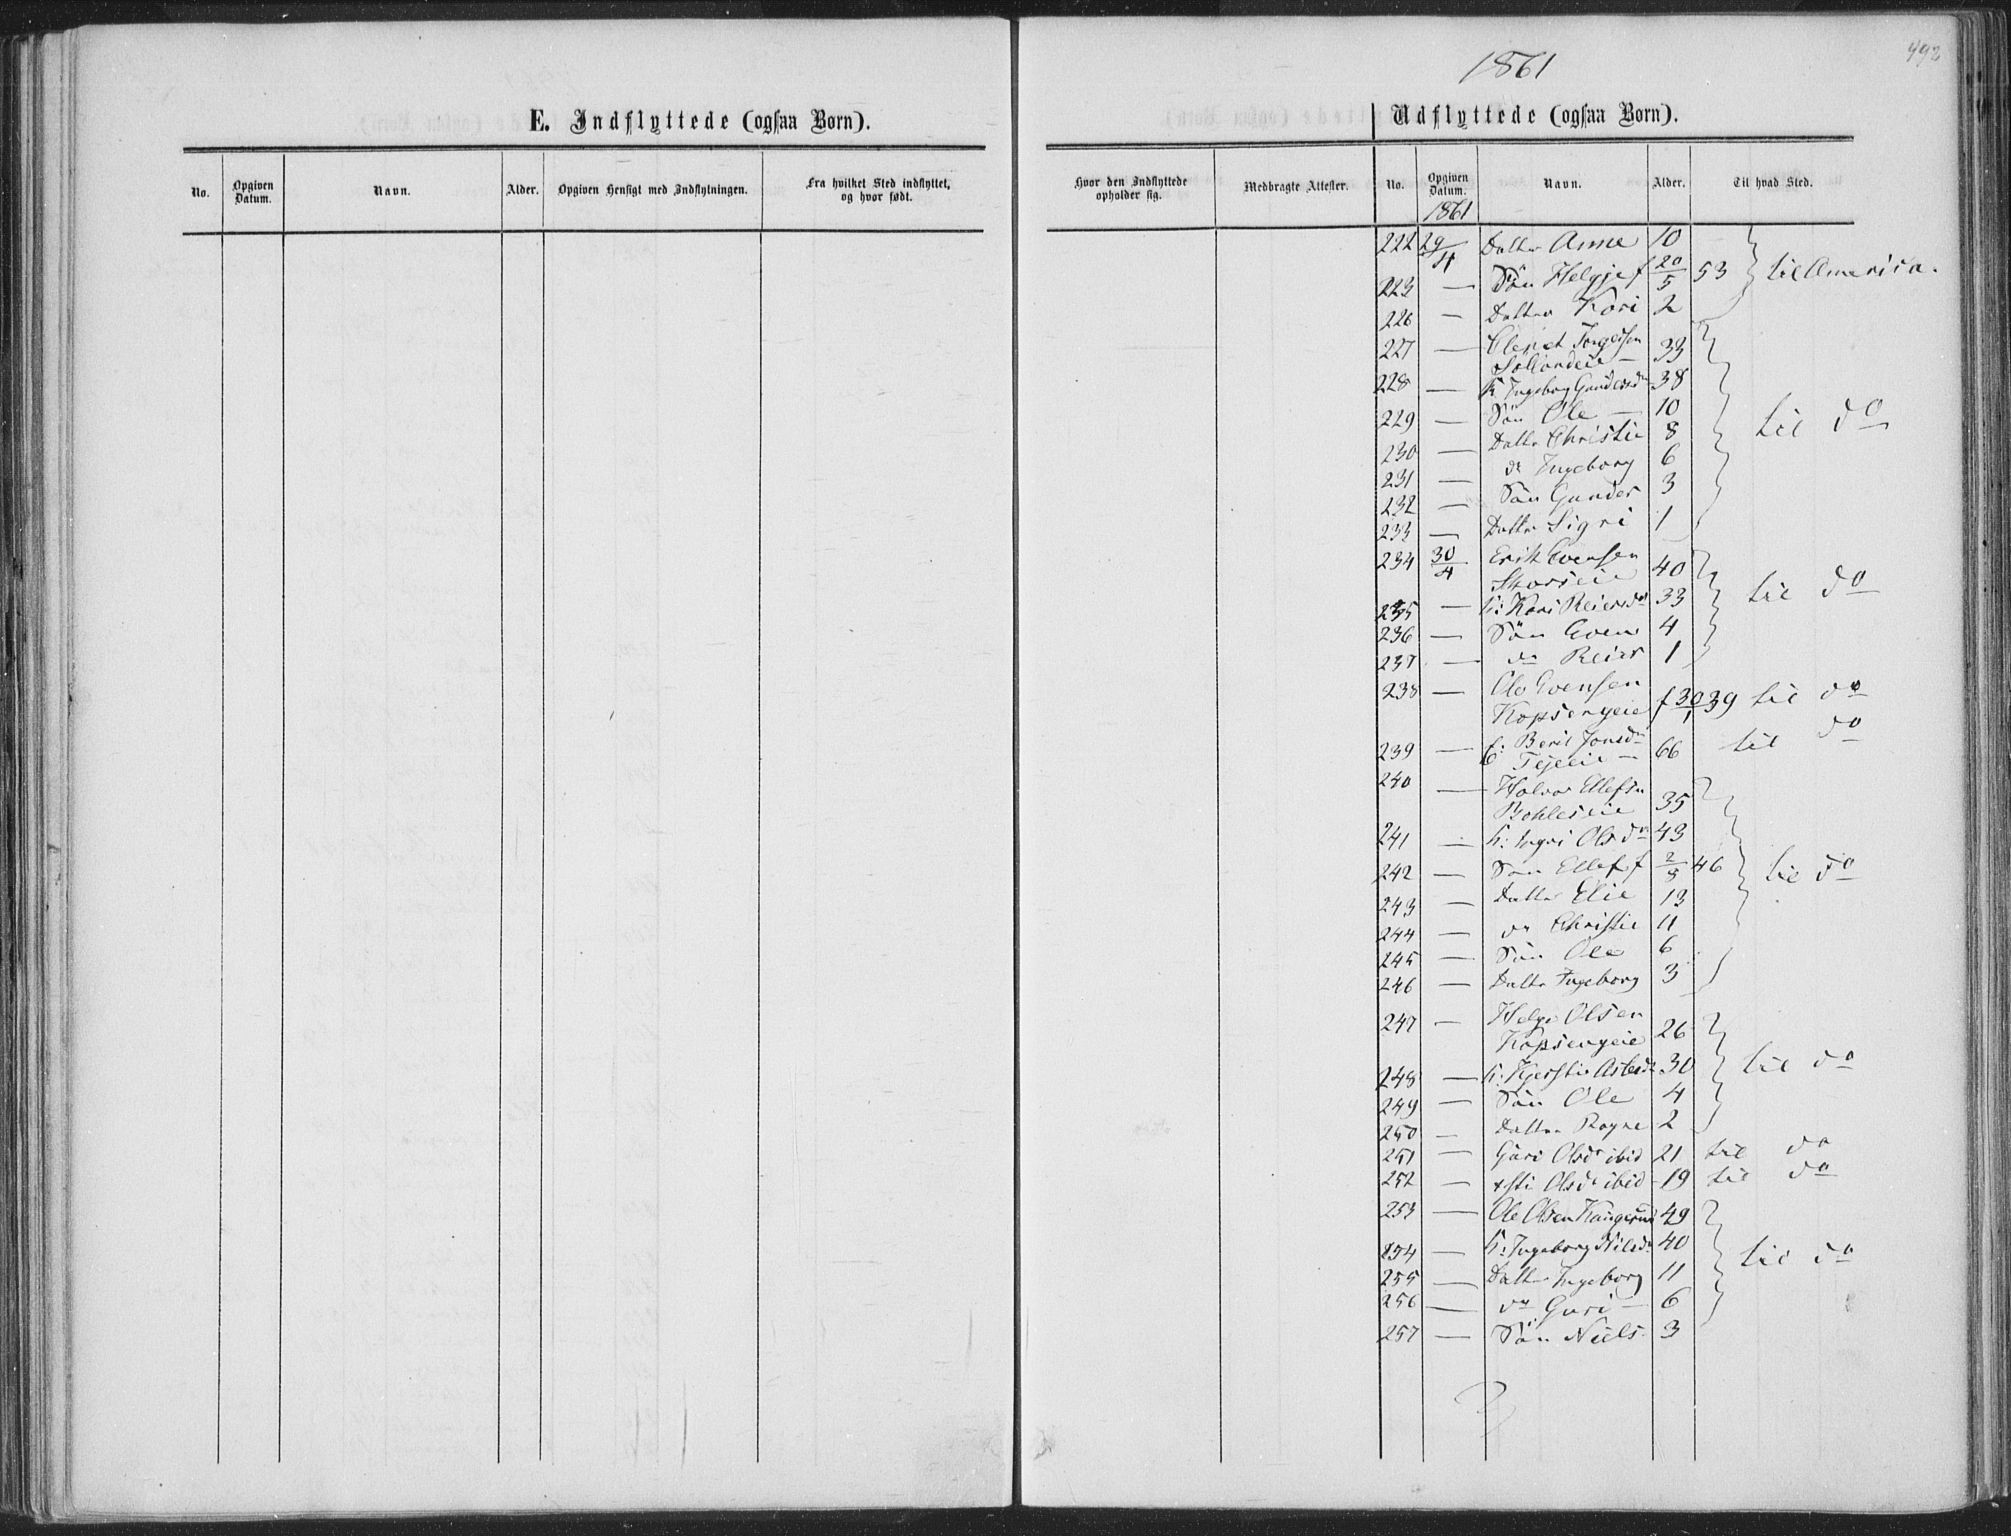 492
1861
E. Indflyttede (ogsaa Børn).
Udflyttede (ogsaa Børn).
No. Opgiven Datum. Navn. Alder. Opgiven Hensigt med Indflytningen. Fra hvilket Sted indflyttet, og hvor født.
Hvor den Indflyttede opholder sig. Medbragte Attester. No. Opgiven Datum. Navn. Alder. Til hvad Sted.
1861
222 29/4 Datter Anne 10
223 — Søn Helgje f 20/5 53 til America.
226 — Datter Kari 2
227 — 33
228 — K Ingeborg Gundersdr 38
229 — Søn Ole — 10
230 — Dattr Christie 8 til do
231 — do Ingeborg 6
232 — Søn Gunder 3
233 — Dattr Sigri 1
234 30/4 Erik Evensen 40
235 — K: Kari Reiersdr 33 til do
236 — Søn Even 4
237 — do Reier 1
238 — Ole Evensen
Kopsengeie f 30/1 39 til do
239 — E: Berit Jonsdr
— 66 til do
240 — Halvor Ellefsn
35
241 — K: Ingri Olsdr 43
242 — Søn Ellef f 2/5 46 til do
243 — Dattr Elie 13
244 — do Christie 11
245 — Søn Ole 6
246 — Dattr Ingeborg 3
247 — Helge Olsen
Kopsengeie 26
248 — K: Kjerstie 30 til do
249 — Søn Ole 4
250 — Datter Rogne 2
251 — Guri Olsdr ibid 21 til do
252 — Olsdr ibid 19 til do
253 — Ole Olsen 49
254 — K: Ingeborg Nilsdr 40 til do
255 — Dattr Ingeborg 11
256 — do Guri — 6
257 — Søn Niels 3